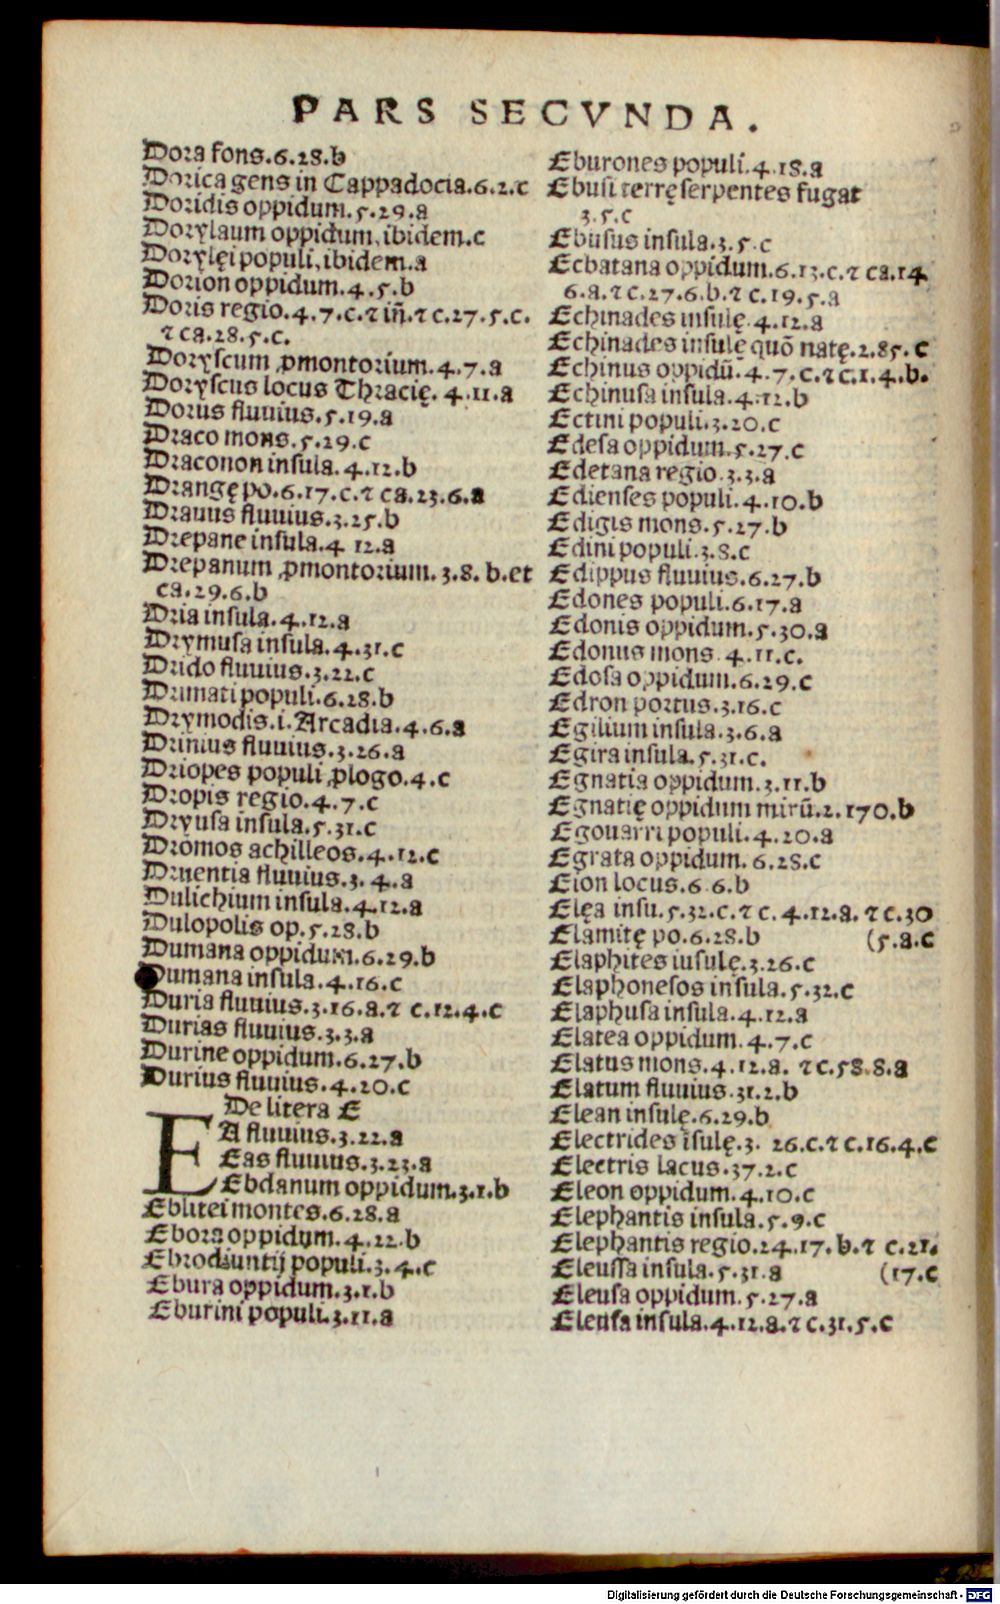 PARS SECVNDA.
Dora fons.6.28.b
Dorica gens in Cappadocia.6.2.c
Doridis oppidum.5.29.a
Dorylaum oppidum, ibidem.c
Dorylęi populi, ibidem.a
Dorion oppidum.4.5.b
Doris regio.4.7.c.⁊ in̄.⁊ c.27.5.c.
⁊ ca.28.5.c.
Doryscum ꝓmontorium.4.7.a
Doryscus locus Thracię. 4.11.a
Dorus fluuius.5.19.a
Draco mons.5.29.c
Draconon insula.4.12.b
Drangę po.6.17.c.⁊ ca.23.6.a
Drauus fluuius.3.25.b
Drepane insula.4 12.a
Drepanum ꝓmontorium.3.8.b.et
ca.29.6.b
Dria insula.4.12.a
Drymusa insula.4.31.c
Drido fluuius.3.22.c
Drimati populi.6.28.b
Drymodis.i.Arcadia.4.6.a
Drinius fluuius.3.26.a
Driopes populi ꝓlogo.4.c
Dropis regio.4.7.c
Dryusa insula.5.31.c
Dromos achilleos.4.12.c
Druentia fluuius.3.4.a
Dulichium insula.4.12.a
Dulopolis op.5.28.b
Dumana oppidum.6.29.b
Dumana insula.4.16.c
Duria fluuius.3.16.a.⁊ c.12.4.c
Durias fluuius.3.3.a
Durine oppidum.6.27.b
Durius fluuius.4.20.c
De litera E
EA fluuius.3.22.a
Eas fluuius.3.23.a
Ebdanum oppidum.3.1.b
Eblitei montes.6.28.a
Ebora oppidum.4.22.b
Ebrodiuntij populi.3.4.c
Ebura oppidum.3.1.b
Eburini populi.3.11.a
Eburones populi.4.18.a
Ebusi terrę serpentes fugat
3.5.c
Ebusus insula.3.5.c
Ecbatana oppidum.6.13.c.⁊ ca.14
6.a.⁊ c.27.6.b.⁊ c.19.5.a
Echinades insulę.4.12.a
Echinades insulę quō natę.2.85.c
Echinus oppidū.4.7.c.⁊ c.1.4.b.
Echinusa insula.4.12.b
Ectini populi.3.20.c
Edesa oppidum.5.27.c
Edetana regio.3.3.a
Edienses populi.4.10.b
Edigis mons.5.27.b
Edini populi.3.8.c
Edippus fluuius.6.27.b
Edones populi.6.17.a
Edonis oppidum.5.30.a
Edonus mons.4.11.c.
Edosa oppidum.6.29.c
Edron portus.3.16.c
Egilium insula.3.6.a
Egira insula.5.31.c.
Egnatia oppidum.3.11.b
Egnatię oppidum mirū.2.170.b
Egouarri populi.4.20.a
Egrata oppidum.6.28.c
Eion locus.6 6.b
Elęa insu.5.32.c.⁊ c.4.12.a.⁊ c.30
Elamitę po.6.28.b (5.a.c
Elaphites iusulę.3.26.c
Elaphonesos insula.5.32.c
Elaphusa insula.4.12.a
Elatea oppidum.4.7.c
Elatus mons.4.12.a. ⁊ c.58.8.a
Elatum fluuius.31.2.b
Elean insulę.6.29.b
Electrides īsulę.3. 26.c.⁊ c.16.4.c
Electris lacus.37.2.c
Eleon oppidum.4.10.c
Elephantis insula.5.9.c
Elephantis regio.24.17.b.⁊ c.21.
Eleussa insula.5.31.a (17.c
Eleusa oppidum.5.27.a
Eleusa insula.4.12.a.⁊ c.31.5.c
Digitalisierung gefördert durch die Deutsche Forschungsgemeinschaft - DFG